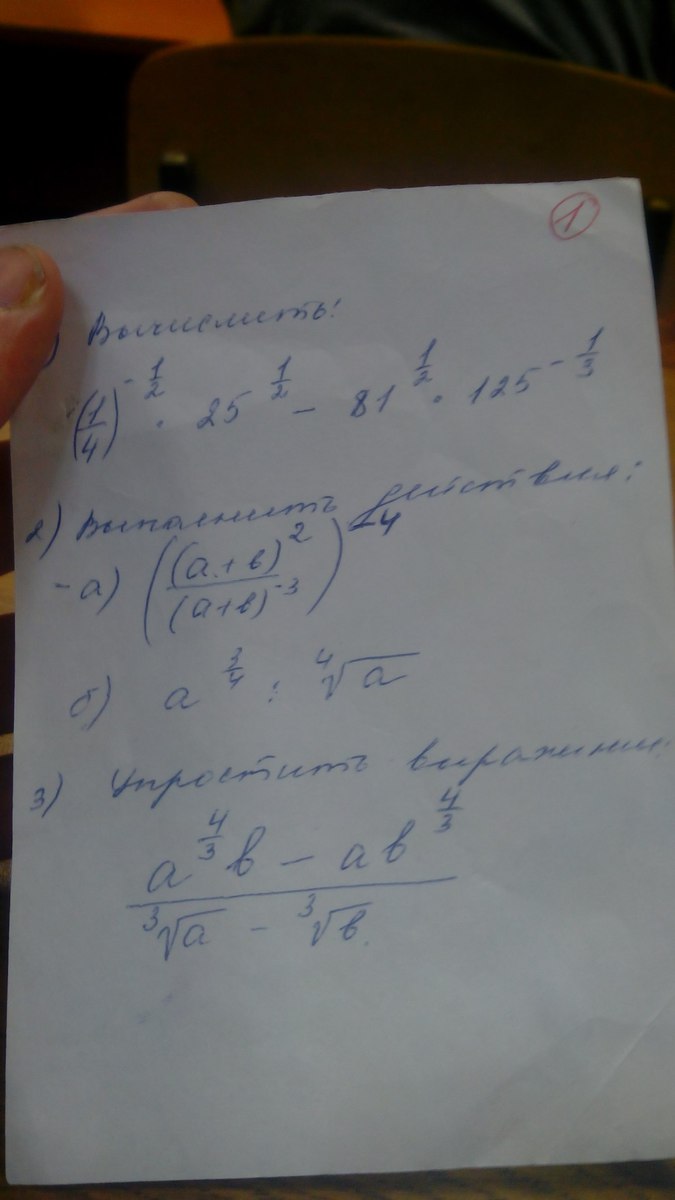 1
) Вычислить:
(1/4)^(-1/2) · 25^(1/2) - 81^(1/2) · 125^(-1/3)
2) Выполнить действия:
-а) ((a+b)^2/(a+b)^(-3))^(-4)
б) a^(3/4) : ⁴√a
3) Упростить выражении:
(a^(4/3)b - ab^(4/3))/(³√a - ³√b)